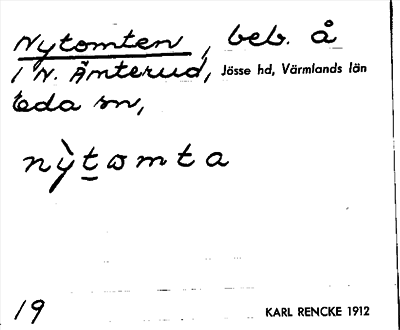 Nytomten, beb. å
1 N. Ämterud, Jösse hd, Värmlands län
Eda sn,
nỳtωmta
19 KARL RENCKE 1912